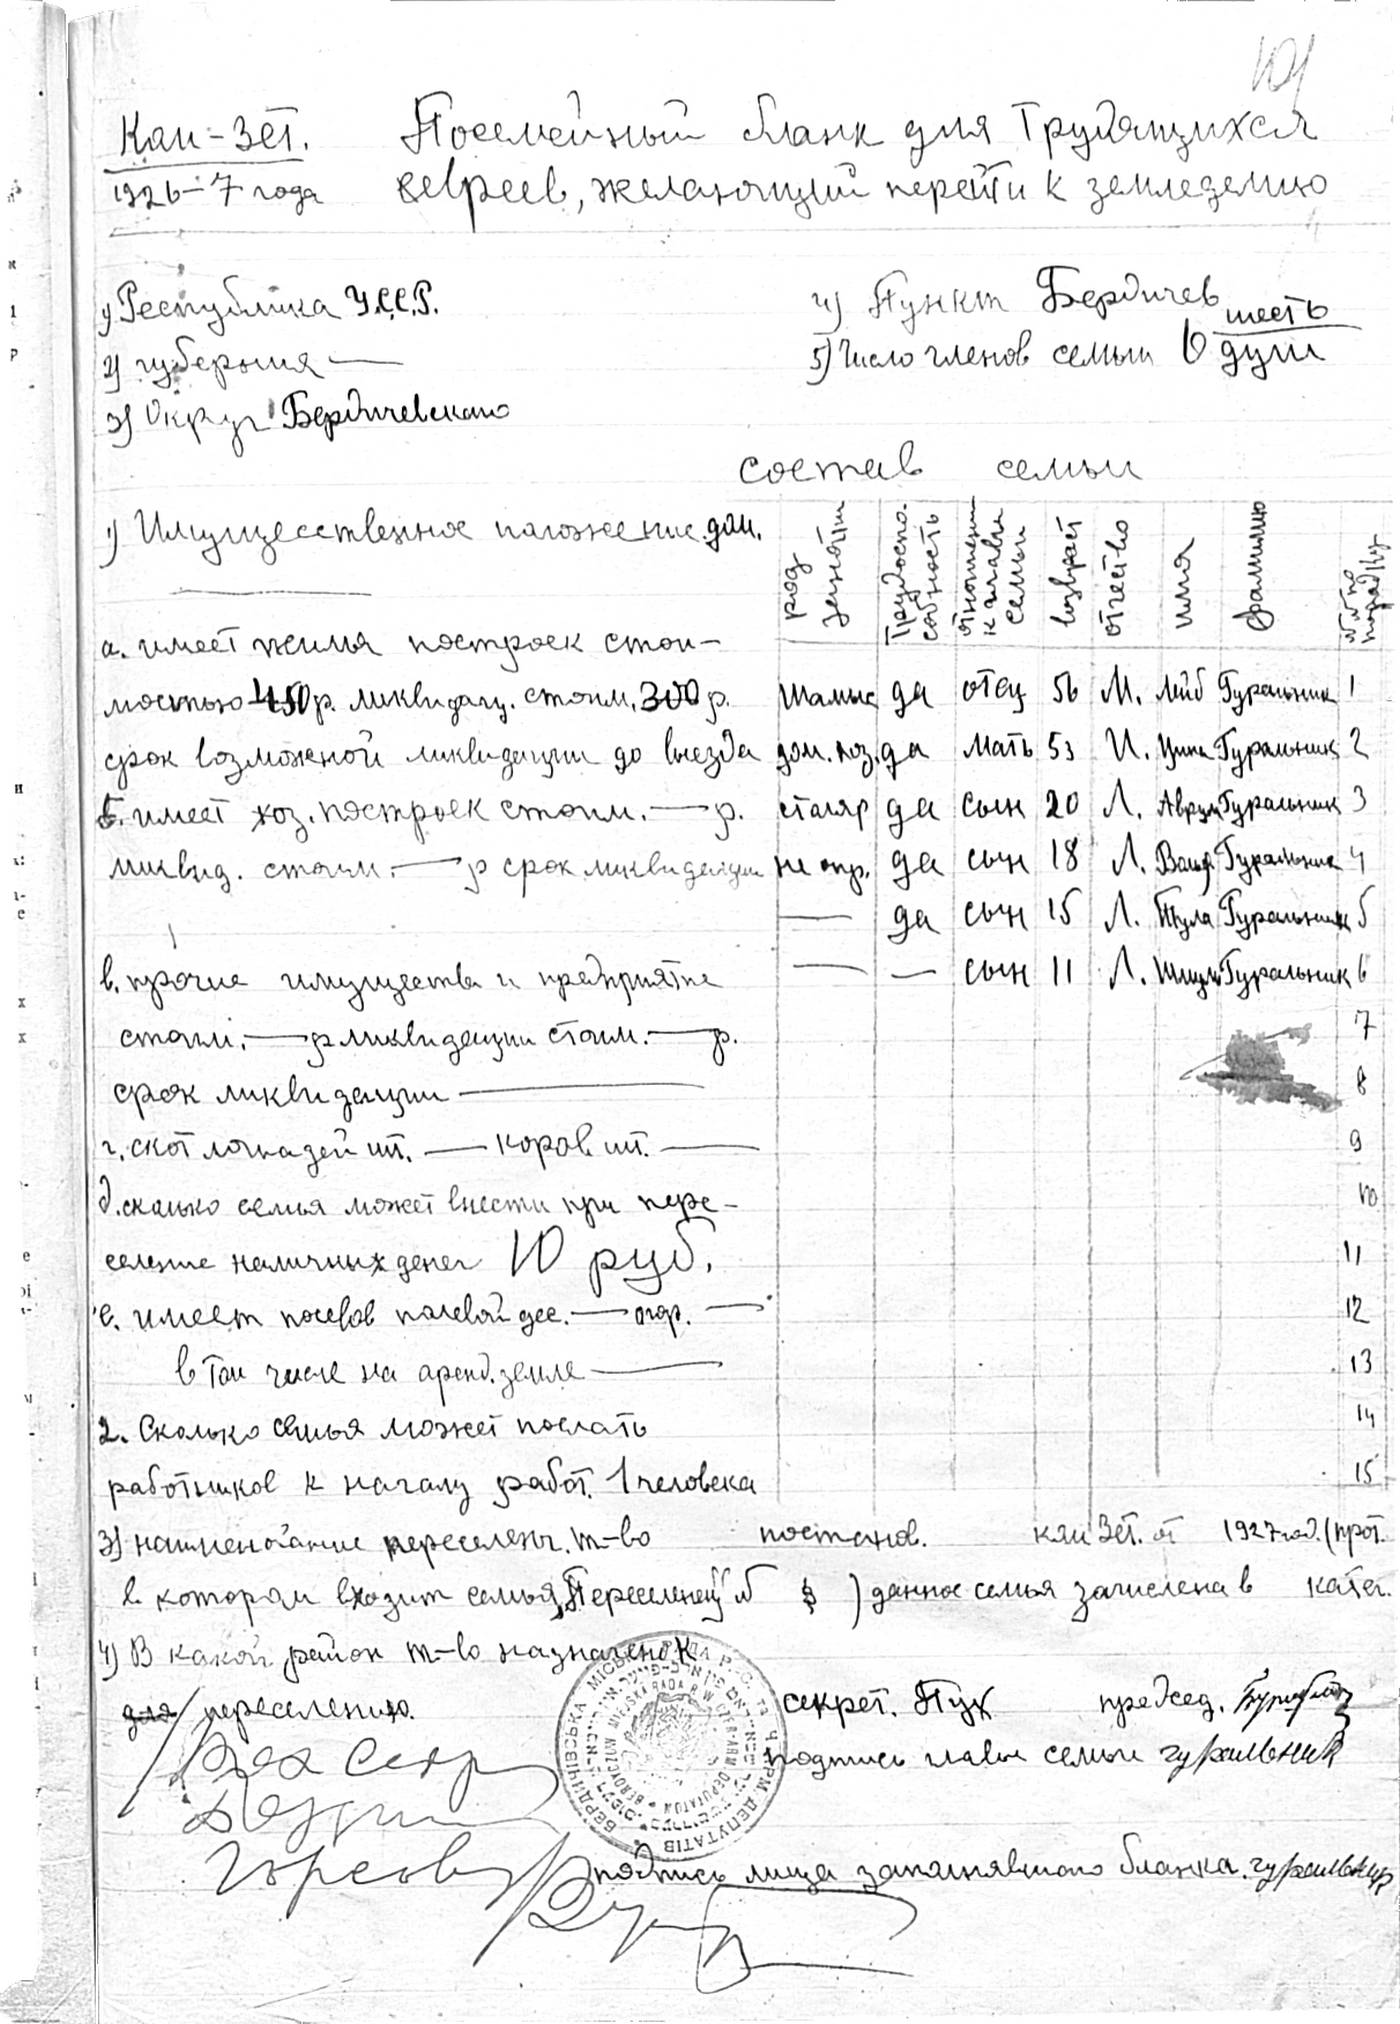 101
Ком-Зет.
1926-7 года
Посемейный бланк для Трудящихся
евреев, желающий перейти к земледелию
1) Республика У.С.С.Р.
2) губерния —
3) Округ Бердичевского
4) Пункт Бердичев
5) Число членов семьи 6 шесть душ
состав семьи
1) Имущественное положение дом.
а. имеет жилья построек стои-
мостью 450 р. ликвидац. стоим. 300 р.
срок возможной ликвидации до выезда
б. имеет хоз. построек стоим. — р.
ликвид. стоим. — р срок ликвидации
в. прочие имущества и предприятие
стоим. — р ликвидации стоим. — р.
срок ликвидации —
г. скот лошадей шт. — коров шт. —
д. сколько семья может внести при пере-
селение наличных денег 10 руб.
е. имеет посевов полевой дес. — огор. —
в том числе на аренд. земле —
2. Сколько семья может послать
работников к началу работ. 1 человека
род занятий трудоспособность отношение к главы семьи возраст отчество имя фамилию №№ по порядку
шамыс да отец 56 М. Лейб Гуральник 1
дом. хоз. да мать 53 И. Ципа Гуральник 2
столяр да сын 20 Л. Аврум Гуральник 3
не опр. да сын 18 Л. Гуральник 4
— да сын 15 Л. Гуральник 5
— — сын 11 Л. Гуральник 6
7
8
9
10
11
12
13
14
15
3) наименование переселенч. т-во
в котором входит семья „Переселенец"
постанов. ком Зет. от 1927 год. (прот.
№ § ) данное семья зачислена в катег.
4) В какой район т-во назначено к
для переселению.
секрет. Пух председ.
подпись главы семьи гуральник
подпись лица заполнявшего бланка. гуральник
БЕРДИЧІВСЬКА МІСЬКА РАДА Р. С. ТА Ч. АРМ. ДЕПУТАТІВ